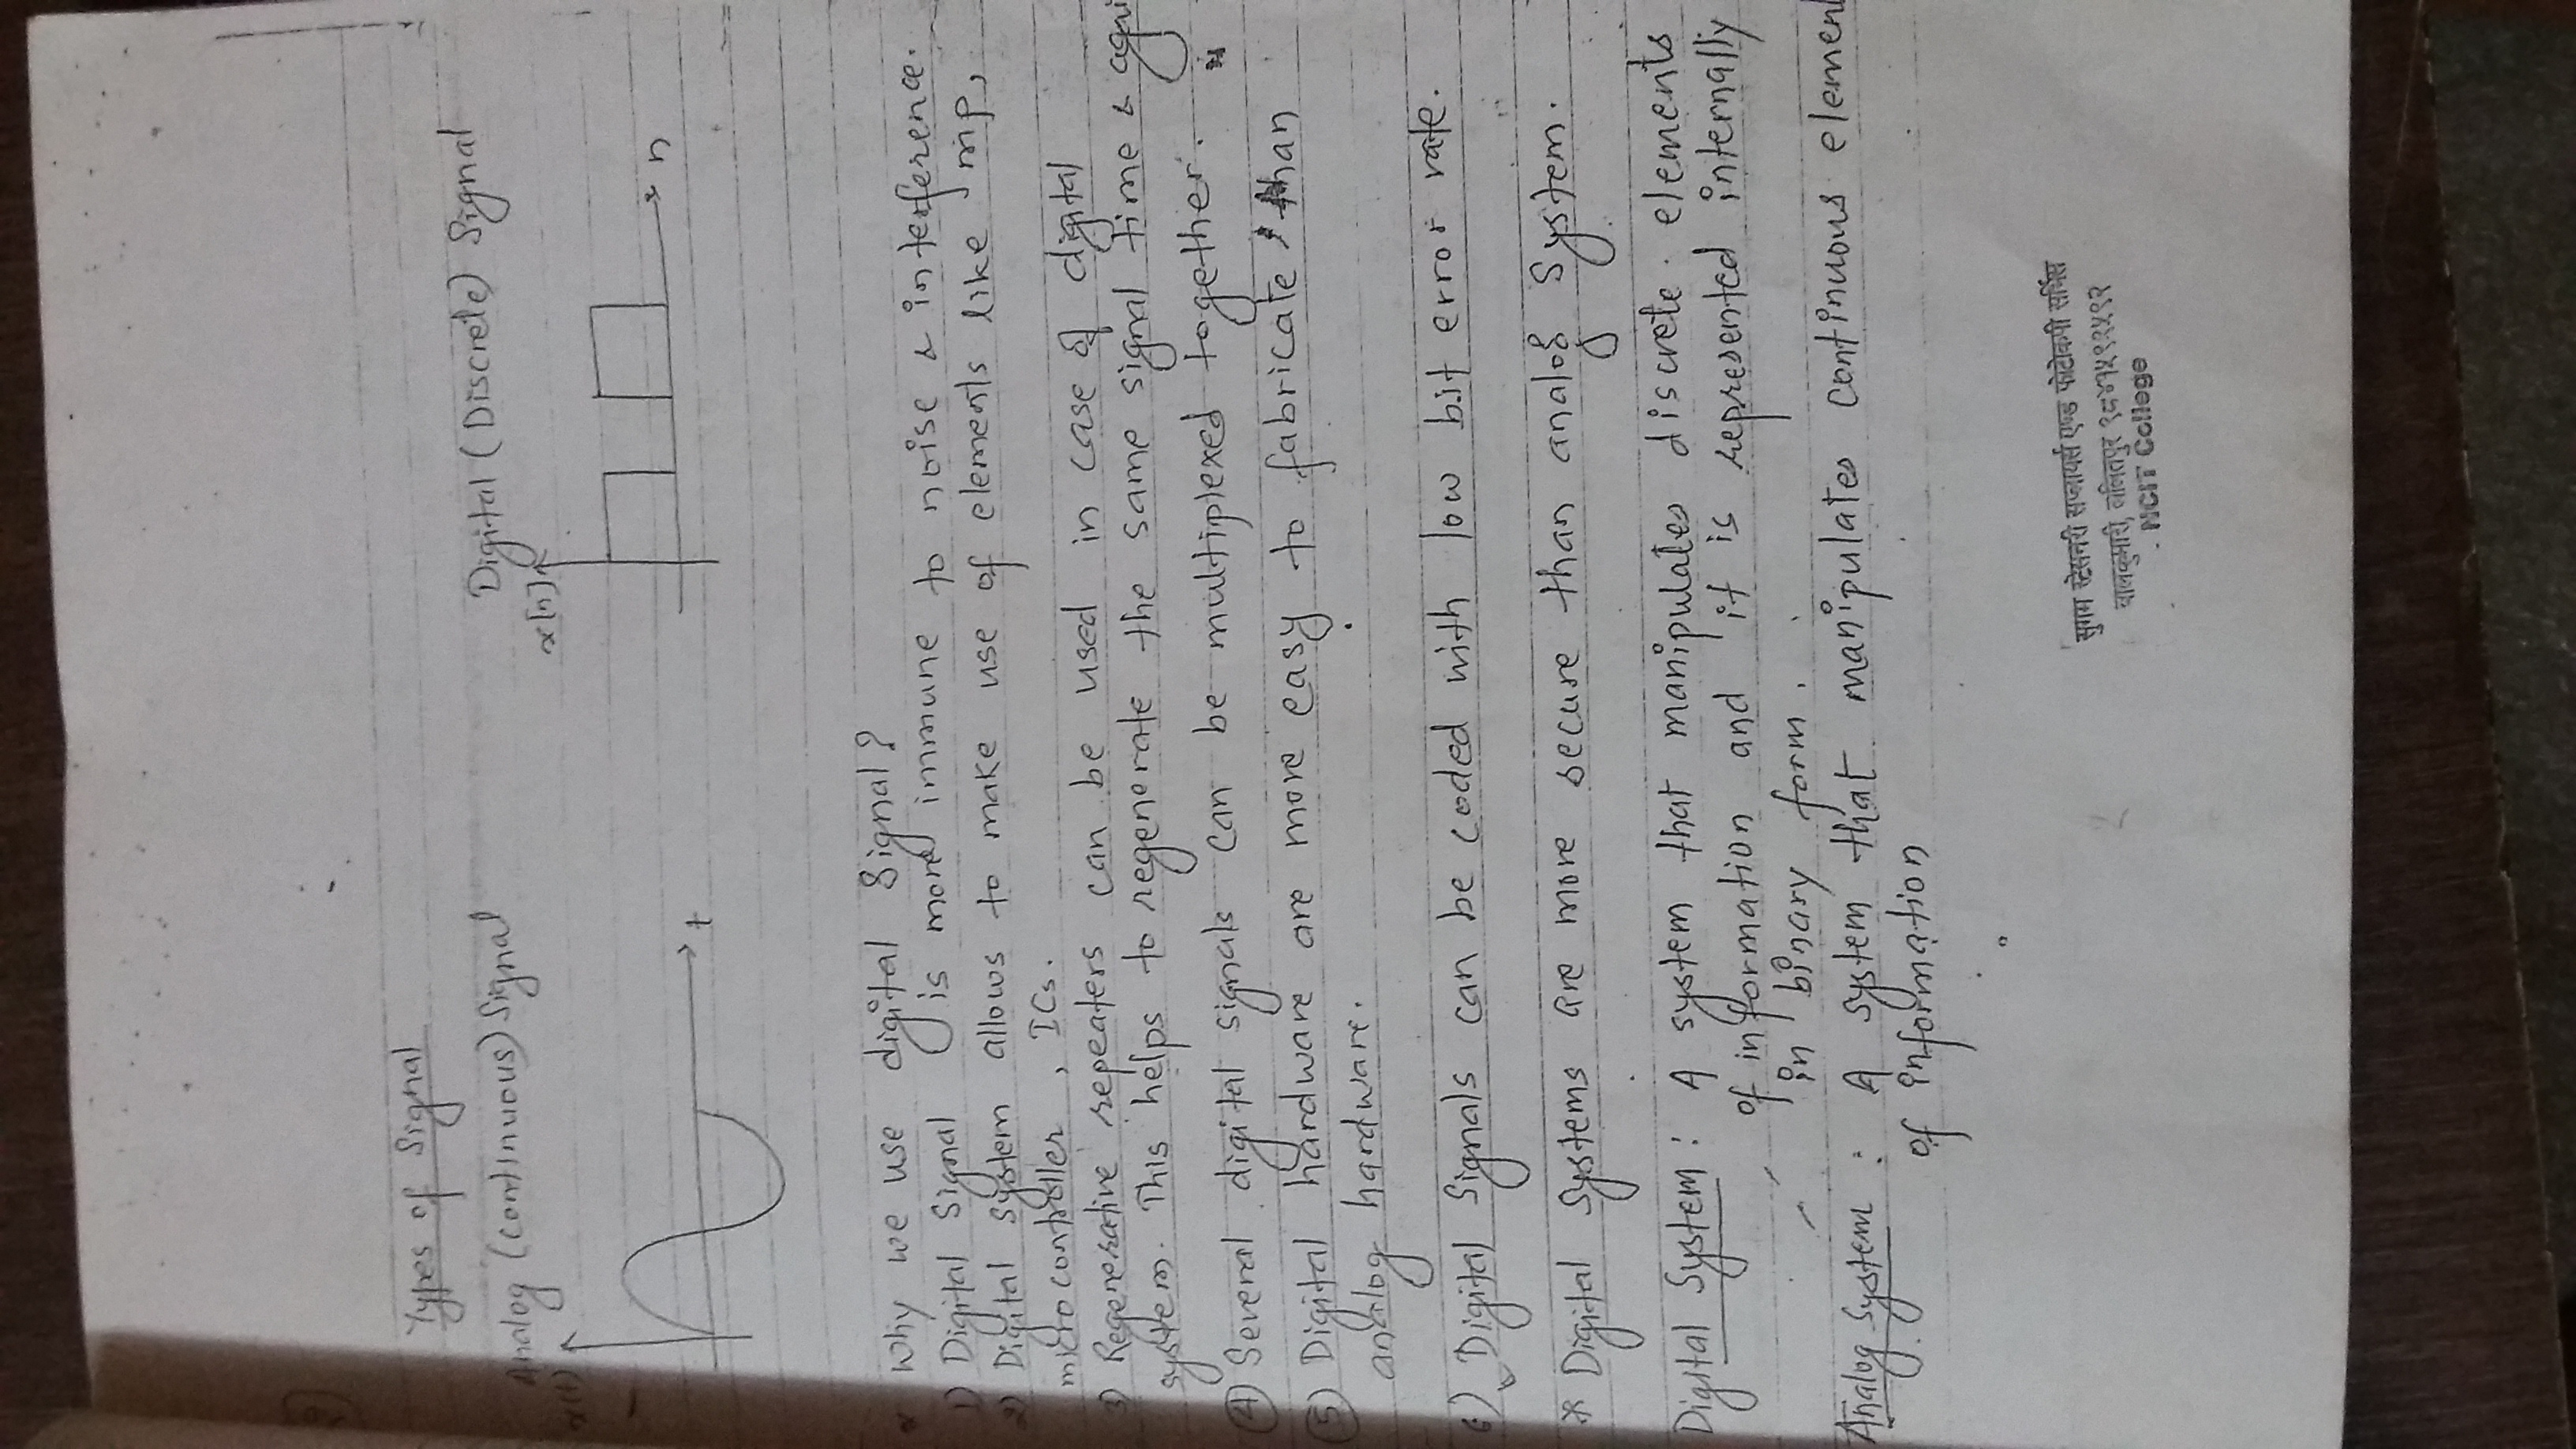 Types of Signal
Analog (continuous) Signal
Digital (Discrete) Signal
x(t)
x[n]
t
n
* Why we use digital Signal?
1) Digital Signal is more immune to noise & interference.
2) Digital System allows to make use of elements like mp,
microcontroller, ICs.
3) Regenerative repeaters can be used in case of digital
system. This helps to regenerate the same signal time & agai
4) Several digital signals can be multiplexed together.
5) Digital hardware are more easy to fabricate than
analog hardware.
6) Digital Signals can be coded with low bit error rate.
* Digital Systems are more secure than analog System.
Digital System : A system that manipulates discrete elements
of information and it is represented internally
in binary form.
Analog System : A system that manipulates continuous elemen
of information
सुगम स्टेसनरी सप्लायर्स एण्ड फोटोकपी सर्भिस
बालकुमारी, ललितपुर ९८४१५९२५९२
NCIT College